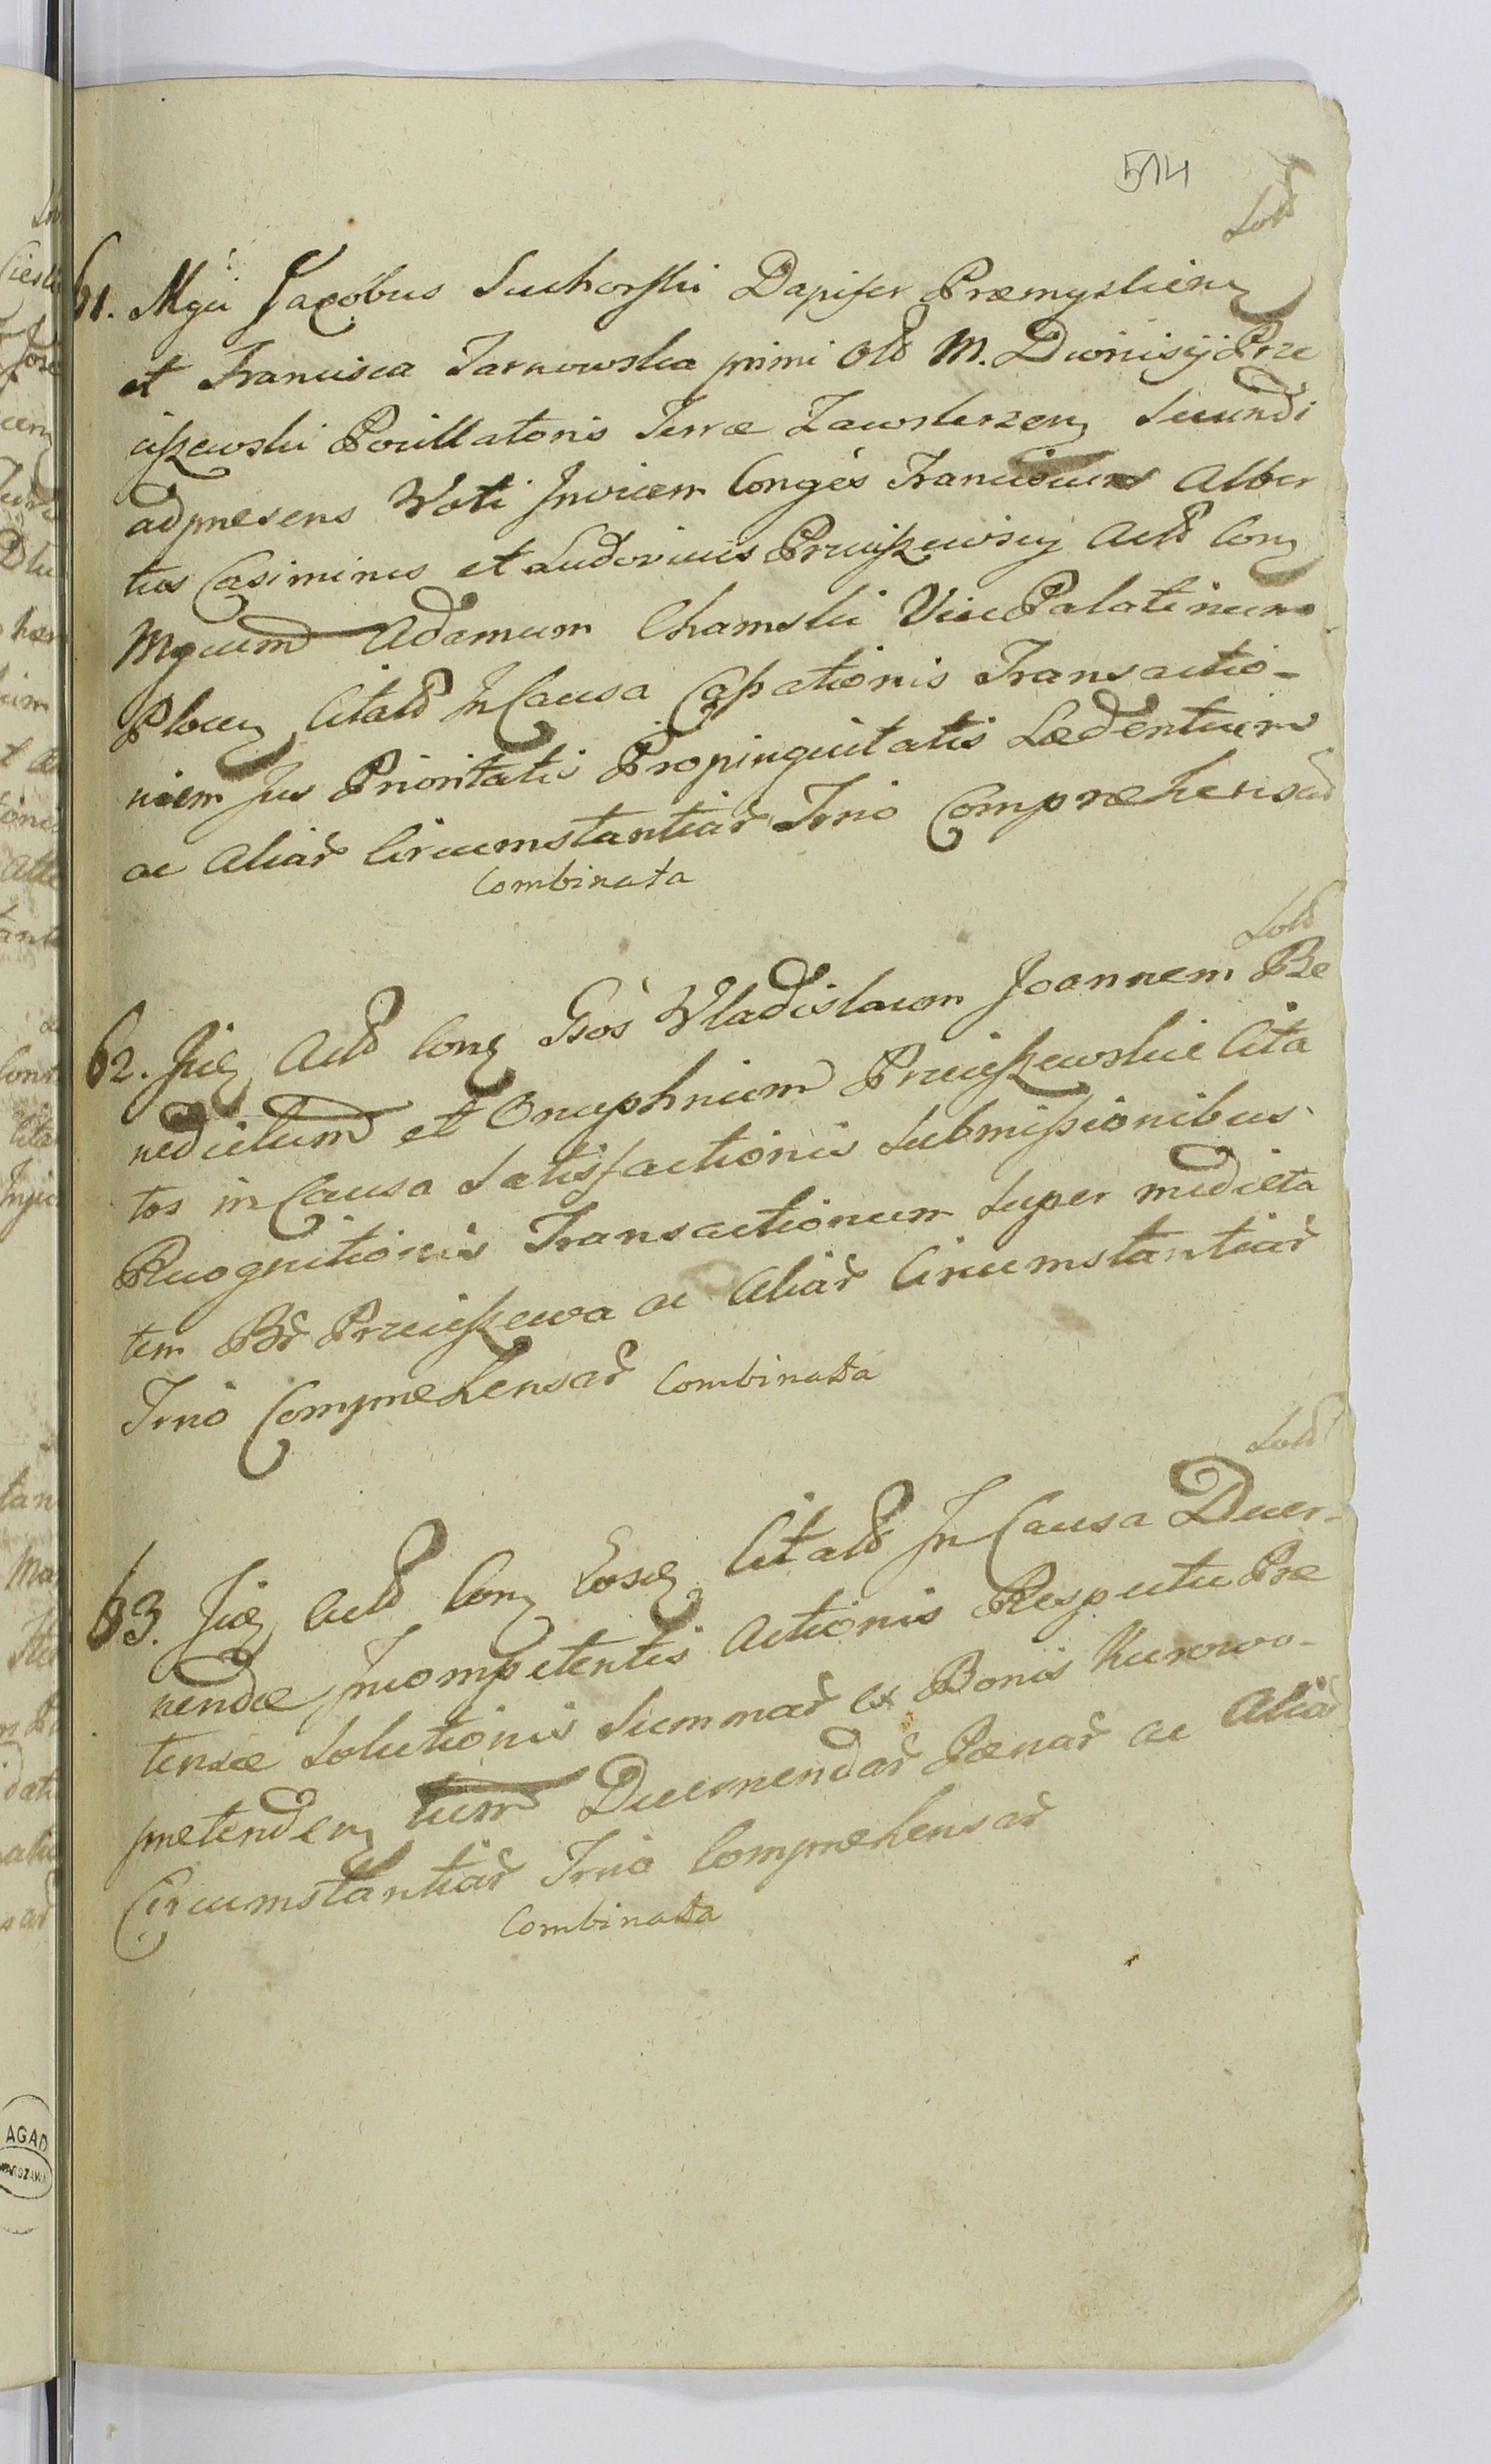 514
Sold
61. Mgci Jacobus Suchorski Dapifer Præmysliens
et Francisca Tarnowska primi Old M. Dionisÿ Prze
ciszewski Pocillatoris Terræ Zawskrzens Secundi
adpræsens Voti Invicem Conges Franciscus Alber
tus Casimirus et Ludovicus Przeciszewscy Actd Con
Mgcum Adamum Chamski Vice Palatinum
Plocens Citatd In Causa Cassationis Transactio-
niem Jus Prioritatis Propinquitatis Lædentium
ac Aliar Circumstantiar Trno Comprehensar
Combinata
Sold
62. Iiq Actd Con Gsos Vladislaum Joannem Be
nedictum et Onuphrium Przeciszewskie Cita
tos in Causa Satisfactionis Submissionibus
Recognitionis Transactionum Super medieta
tem Br Przeciszewa ac Aliar Circumstantiar
Trno Comprehensar Combinata
Sold
63. Iiq Actd Con Eosq Citatd In Causa Decer-
nendæ Incompetentis Actionis Respectu Præ
tensæ Solutionis Summar ex Bonis Kurowo-
prætenden tum Decernendar Pænar ac Aliar
Circumstantiar Trno Comprehensar
Combinata
AGAD
WARSZAWA